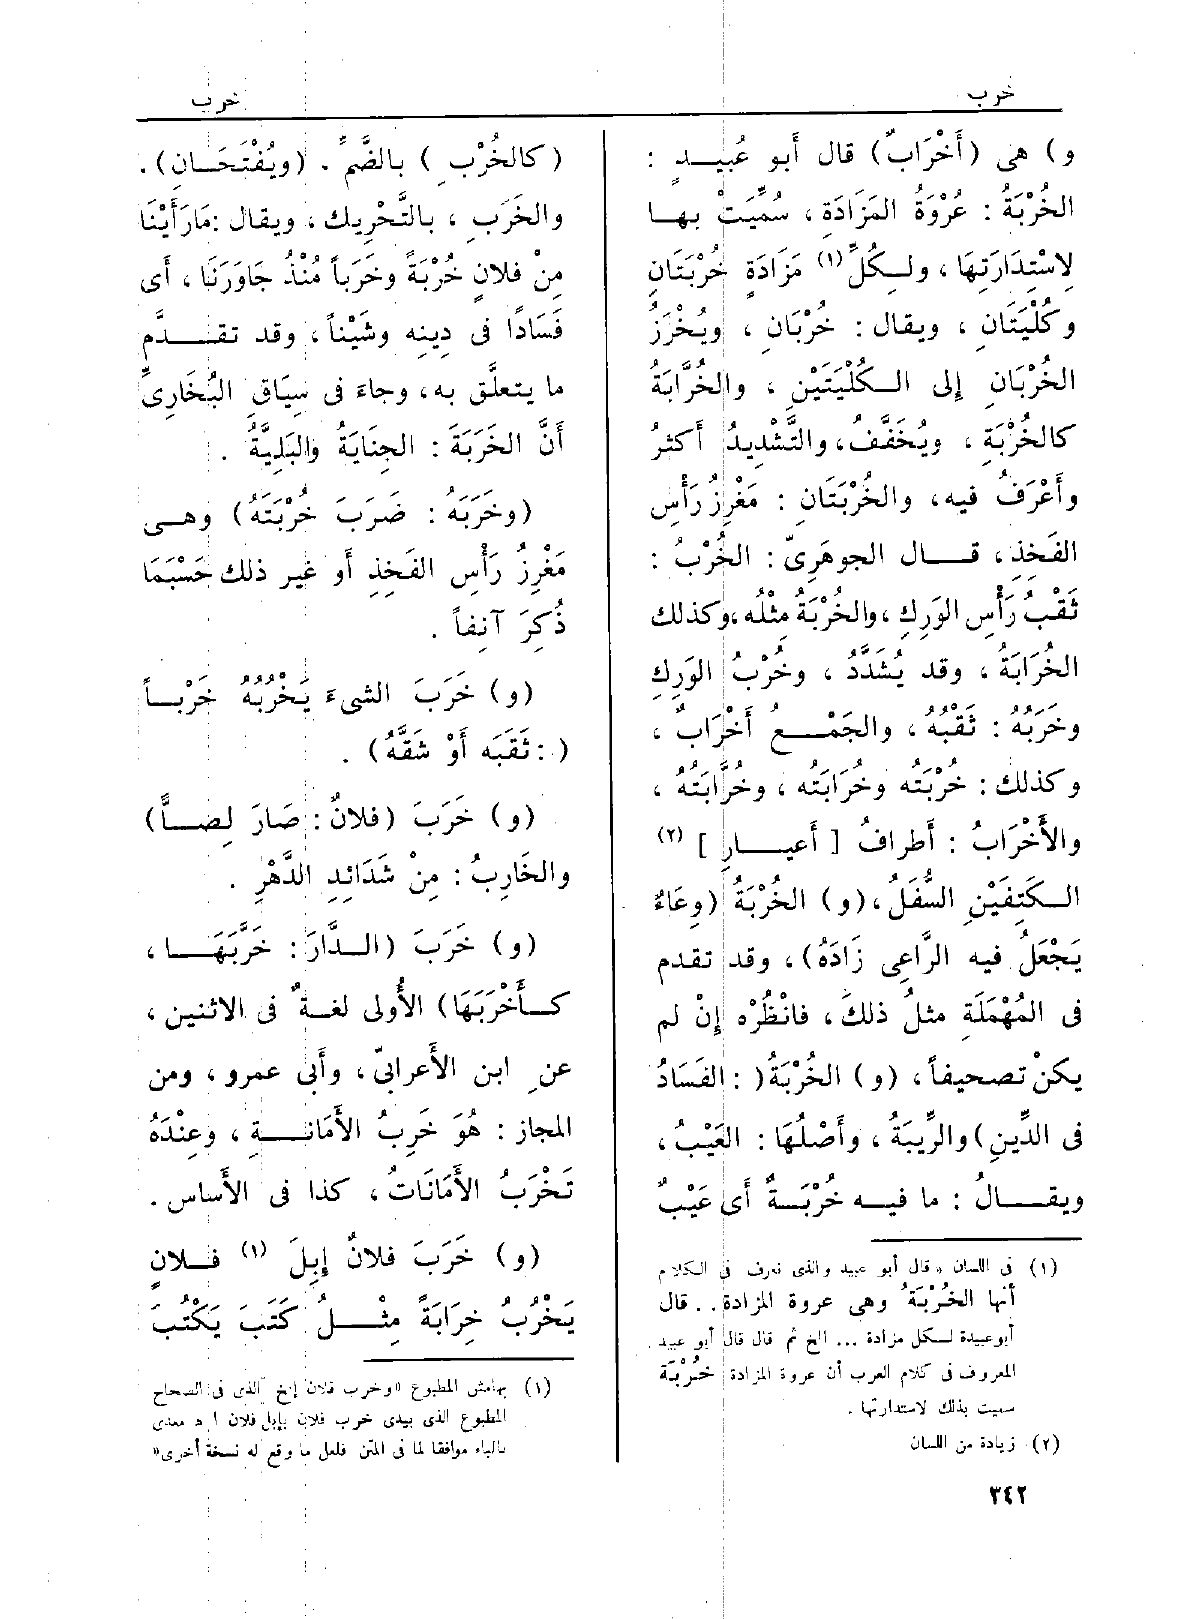 خرب
خرب
و) هى (أَخْرَابٌ) قال أَبو عُبيــدٍ :
الخُرْبَةُ : عُرْوَةُ المَزَادَةِ ، سُمِّيَتْ بهـا
لِاسْتِدَارَتِهَا ، ولـكُلِّ (١) مَزَادَةٍ خُرْبَتَانِ
وكُلْيَتَانِ ، ويقال : خُرْبَانِ ، ويُخْرَزُ
الخُرْبَانِ إِلى الـكُلْيَتَيْنِ ، والخُرَّابَةُ
كالخُرْبَةِ ، ويُخَفَّفُ، والتَّشْدِيدُ أَكثرُ
وأَعْرَفُ فيه، والخُرْبَتَانِ : مَغْرِزُ رَأْسِ
الفَخِذِ، قــال الجوهَرِىّ : الخُرْبُ :
ثَقْبُ رَأْسِ الوَرِكِ ،والخُرْبَةُ مِثْلُه ،وكذلك
الخُرَابَةُ ، وقد يُشَدَّدُ ، وخُرْبُ الوَرِكِ
وخَرَبُهُ : ثَقْبُهُ ، والجَمْــعُ أَخْرَابٌ ،
وكذلك : خُرْبَتُه وخُرَابَتُه ، وخُرَّابَتُهُ ،
والأَخْرَابُ : أَطرافُ [ أَعيــارِ ] (٢)
الـكَتِفَيْنِ السُّفَلُ ،(و) الخُرْبَةُ (وِعَاءٌ
يَجْعَلُ فيه الرَّاعِى زَادَهُ) ، وقد تقدم
فى المُهْمَلَةِ مثلُ ذلكَ ، فانْظُرْه إِنْ لم
يكنْ تصحيفاً ، (و) الخُرْبَةُ( : الفَسَادُ
فى الدِّينِ )والرِّيبَةُ ، وأَصْلُهَا : العَيْبُ ،
ويقــالُ : ما فيـه خُرْبَـةٌ أَى عَيْبٌ
(١) فى اللسان « قال أبو عبيد والذى نعرف فى الـكلام
أنها الخُرْبَةُ وهى عروة المزادة .. قال
أبوعبيدة لـكل مزادة ... الخ ثم قال قال أبو عبيد .
المعروف فى كلام العرب أن عروة المزادة خُرْبَة
سميت بذلك لاستدارتها .
(٢) زيادة من اللسان
٣٤٢
(كالخُرْبِ ) بالضَّمِّ . (ويُفْتَحَـانِ) .
والخَرَبِ ، بالتَّحْرِيك ، ويقال :مَارَأَيْنَا
مِنْ فلانٍ خُرْبَةً وخَرَباً مُنْذُ جَاوَرَنَا ، أَى
فَسَادًا فى دِينِه وشَيْناً ، وقد تقــدَّم
ما يتعلَّق به، وجاءَ فى سِيَاقِ البُخَارِىِّ
أَنَّ الخَرَبَةَ : الجِنَايَةُ والبَلِيَّةُ .
(وخَرَبَهُ : ضَرَبَ خُرْبَتَهُ) وهـى
مَغْرِزُ رَأْسِ الفَخِذِ أَو غير ذلك حَسْبَمَا
ذُكِرَ آنِفاً .
(و) خَرَبَ الشىءَ يَخْرُبُهُ خَرْبـاً
( : ثَقَبَه أَوْ شَقَّهُ) .
(و) خَرَبَ (فلانٌ : صَارَ لِصـاًّ)
والخَارِبُ : مِنْ شَدَائدِ الدَّهْرِ .
(و) خَرَبَ (الـدَّارَ : خَرَّبَهَـا ،
كـأَخْرَبَهَا) الأُولى لغـةٌ فى الاثنين ،
عنِ ابن الأَعرابىّ ، وأَبى عمرو ، ومن
المجاز : هُوَ خَرِبُ الأَمَانــةِ ، وعِنْدَهُ
تَخْرَبُ الأَمَانَاتُ ، كذا فى الأَساس .
(و) خَرَبَ فلانٌ إِبِلَ (١) فـلانٍ
يَخْرُبُ خِرَابَةً مِثــلُ كَتَبَ يَكْتُبُ
(١) بهامش المطبوع «وخرب فلان إلخ الذى فى الصحاح
المطبوع الذى بيدى خرب فلان بإبل فلان ا ه معدى
بالباء موافقا لما فى المتن فلعل ما وقع له نسخة أخرى»